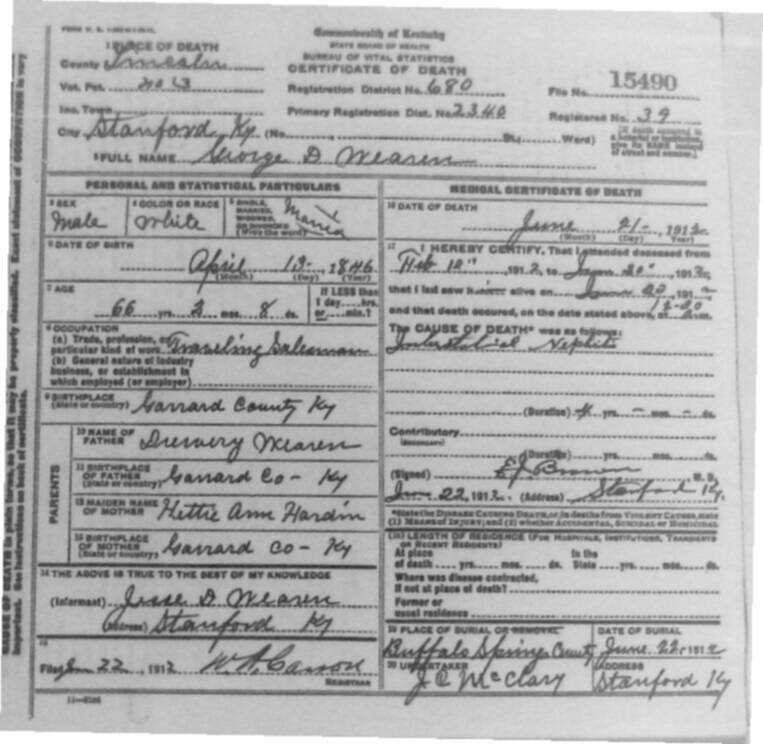 Commonwealth of Kentucky
STATE BOARD OF HEALTH
BUREAU OF VITAL STATISTICS
CERTIFICATE OF DEATH
1 PLACE OF DEATH
County Lincoln
Vot. Pct. No 3
Registration District No. 680
File No. 15490
Inc. Town
Primary Registration Dist. No. 2340
Registered No. 39
City Stanford, Ky (No. St.; Ward)
[If death occurred in a hospital or institution, give its NAME instead of street and number.]
2 FULL NAME George D Wearen
PERSONAL AND STATISTICAL PARTICULARS
3 SEX
Male
4 COLOR OR RACE
White
5 SINGLE, MARRIED, WIDOWED, OR DIVORCED
(Write the word)
6 DATE OF BIRTH
April 13, 1846
(Month) (Day) (Year)
7 AGE
66 yrs. 2 mos. 8 ds.
If LESS than
1 day....hrs.
or....min.?
8 OCCUPATION
(a) Trade, profession, or
particular kind of work Traveling Salesman
(b) General nature of industry
business, or establishment in
which employed (or employer)
9 BIRTHPLACE
(State or country) Garrard County Ky
PARENTS
10 NAME OF
FATHER Drewery Wearen
11 BIRTHPLACE
OF FATHER
(State or country) Garrard Co - Ky
12 MAIDEN NAME
OF MOTHER Hettie Ann Hardin
13 BIRTHPLACE
OF MOTHER
(State or country) Garrard Co - Ky
14 THE ABOVE IS TRUE TO THE BEST OF MY KNOWLEDGE
(Informant) Jesse D Wearen
(Address) Stanford Ky
15
Filed Jun 22, 1912 W. A. Carson
REGISTRAR
MEDICAL CERTIFICATE OF DEATH
16 DATE OF DEATH
June 21-, 1912
(Month) (Day) Year
17 I HEREBY CERTIFY, That I attended deceased from
Feb 12", 1912, to June 20", 1912,
that I last saw h alive on June 20, 191
and that death occured, on the date stated above, at
The CAUSE OF DEATH* was as follows:
Interstitial Nephits
(Duration) 4 yrs. - mos. - ds.
Contributory
(SECONDARY)
(Duration) yrs. mos. ds.
(Signed) E. J. Brown M. D.
June 22, 1912. (Address) Stanford Ky.
*State the DISEASE CAUSING DEATH, or, in deaths from VIOLENT CAUSES, state
(1) MEANS OF INJURY; and (2) whether ACCIDENTAL, SUICIDAL or HOMICIDAL
(18) LENGTH OF RESIDENCE (FOR HOSPITALS, INSTITUTIONS, TRANSIENTS
OR RECENT RESIDENTS)
At place
of death yrs. mos. ds.
In the
State yrs. mos. ds.
Where was disease contracted,
if not at place of death?
Former or
usual residence
19 PLACE OF BURIAL OR REMOVAL
Buffalo Springs County
DATE OF BURIAL
June 22, 1912
20 UNDERTAKER
J C McClary
ADDRESS
Stanford Ky